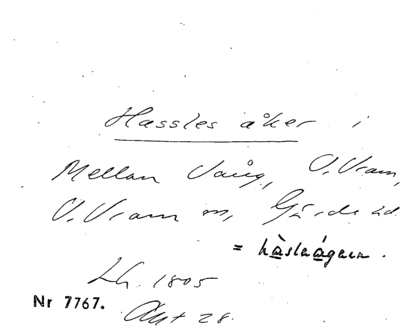 Hassles åker i
Mellan Vång, V. Vram,
V. Vram sn, Gärds hd.
= hàslaágern.
Lh. 1805
Nr 7767. Akt 28.